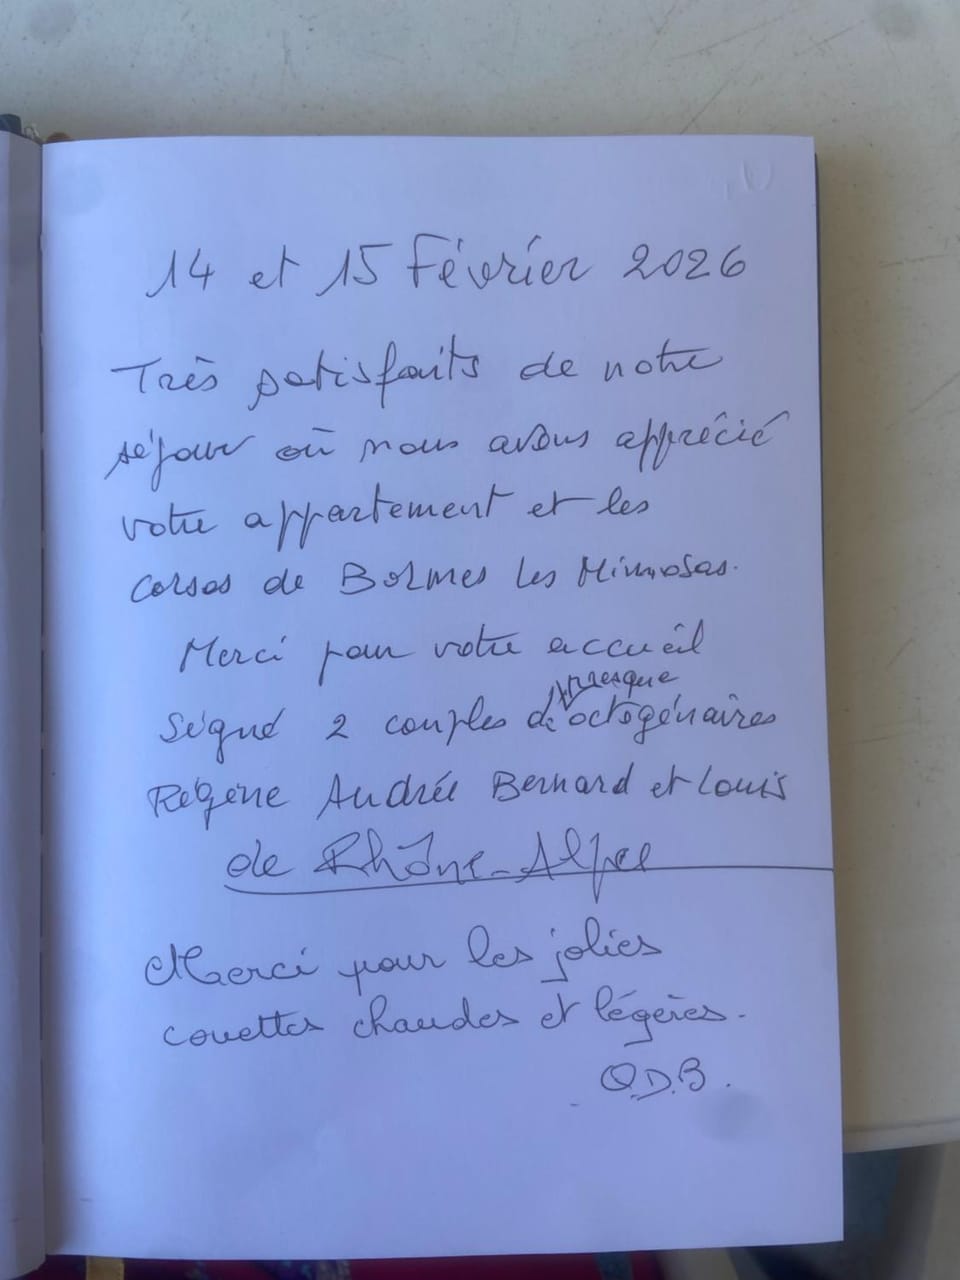 14 et 15 Février 2026
Très satisfaits de notre
séjour où nous avons apprécié
votre appartement et les
corsos de Bormes les Mimosas.
Merci pour votre accueil
presque
Signé 2 couples d'octogénaires
Régine Andrée Bernard et Louis
de Rhône-Alpes
Merci pour les jolies
couettes chaudes et légères.
O.D.B.